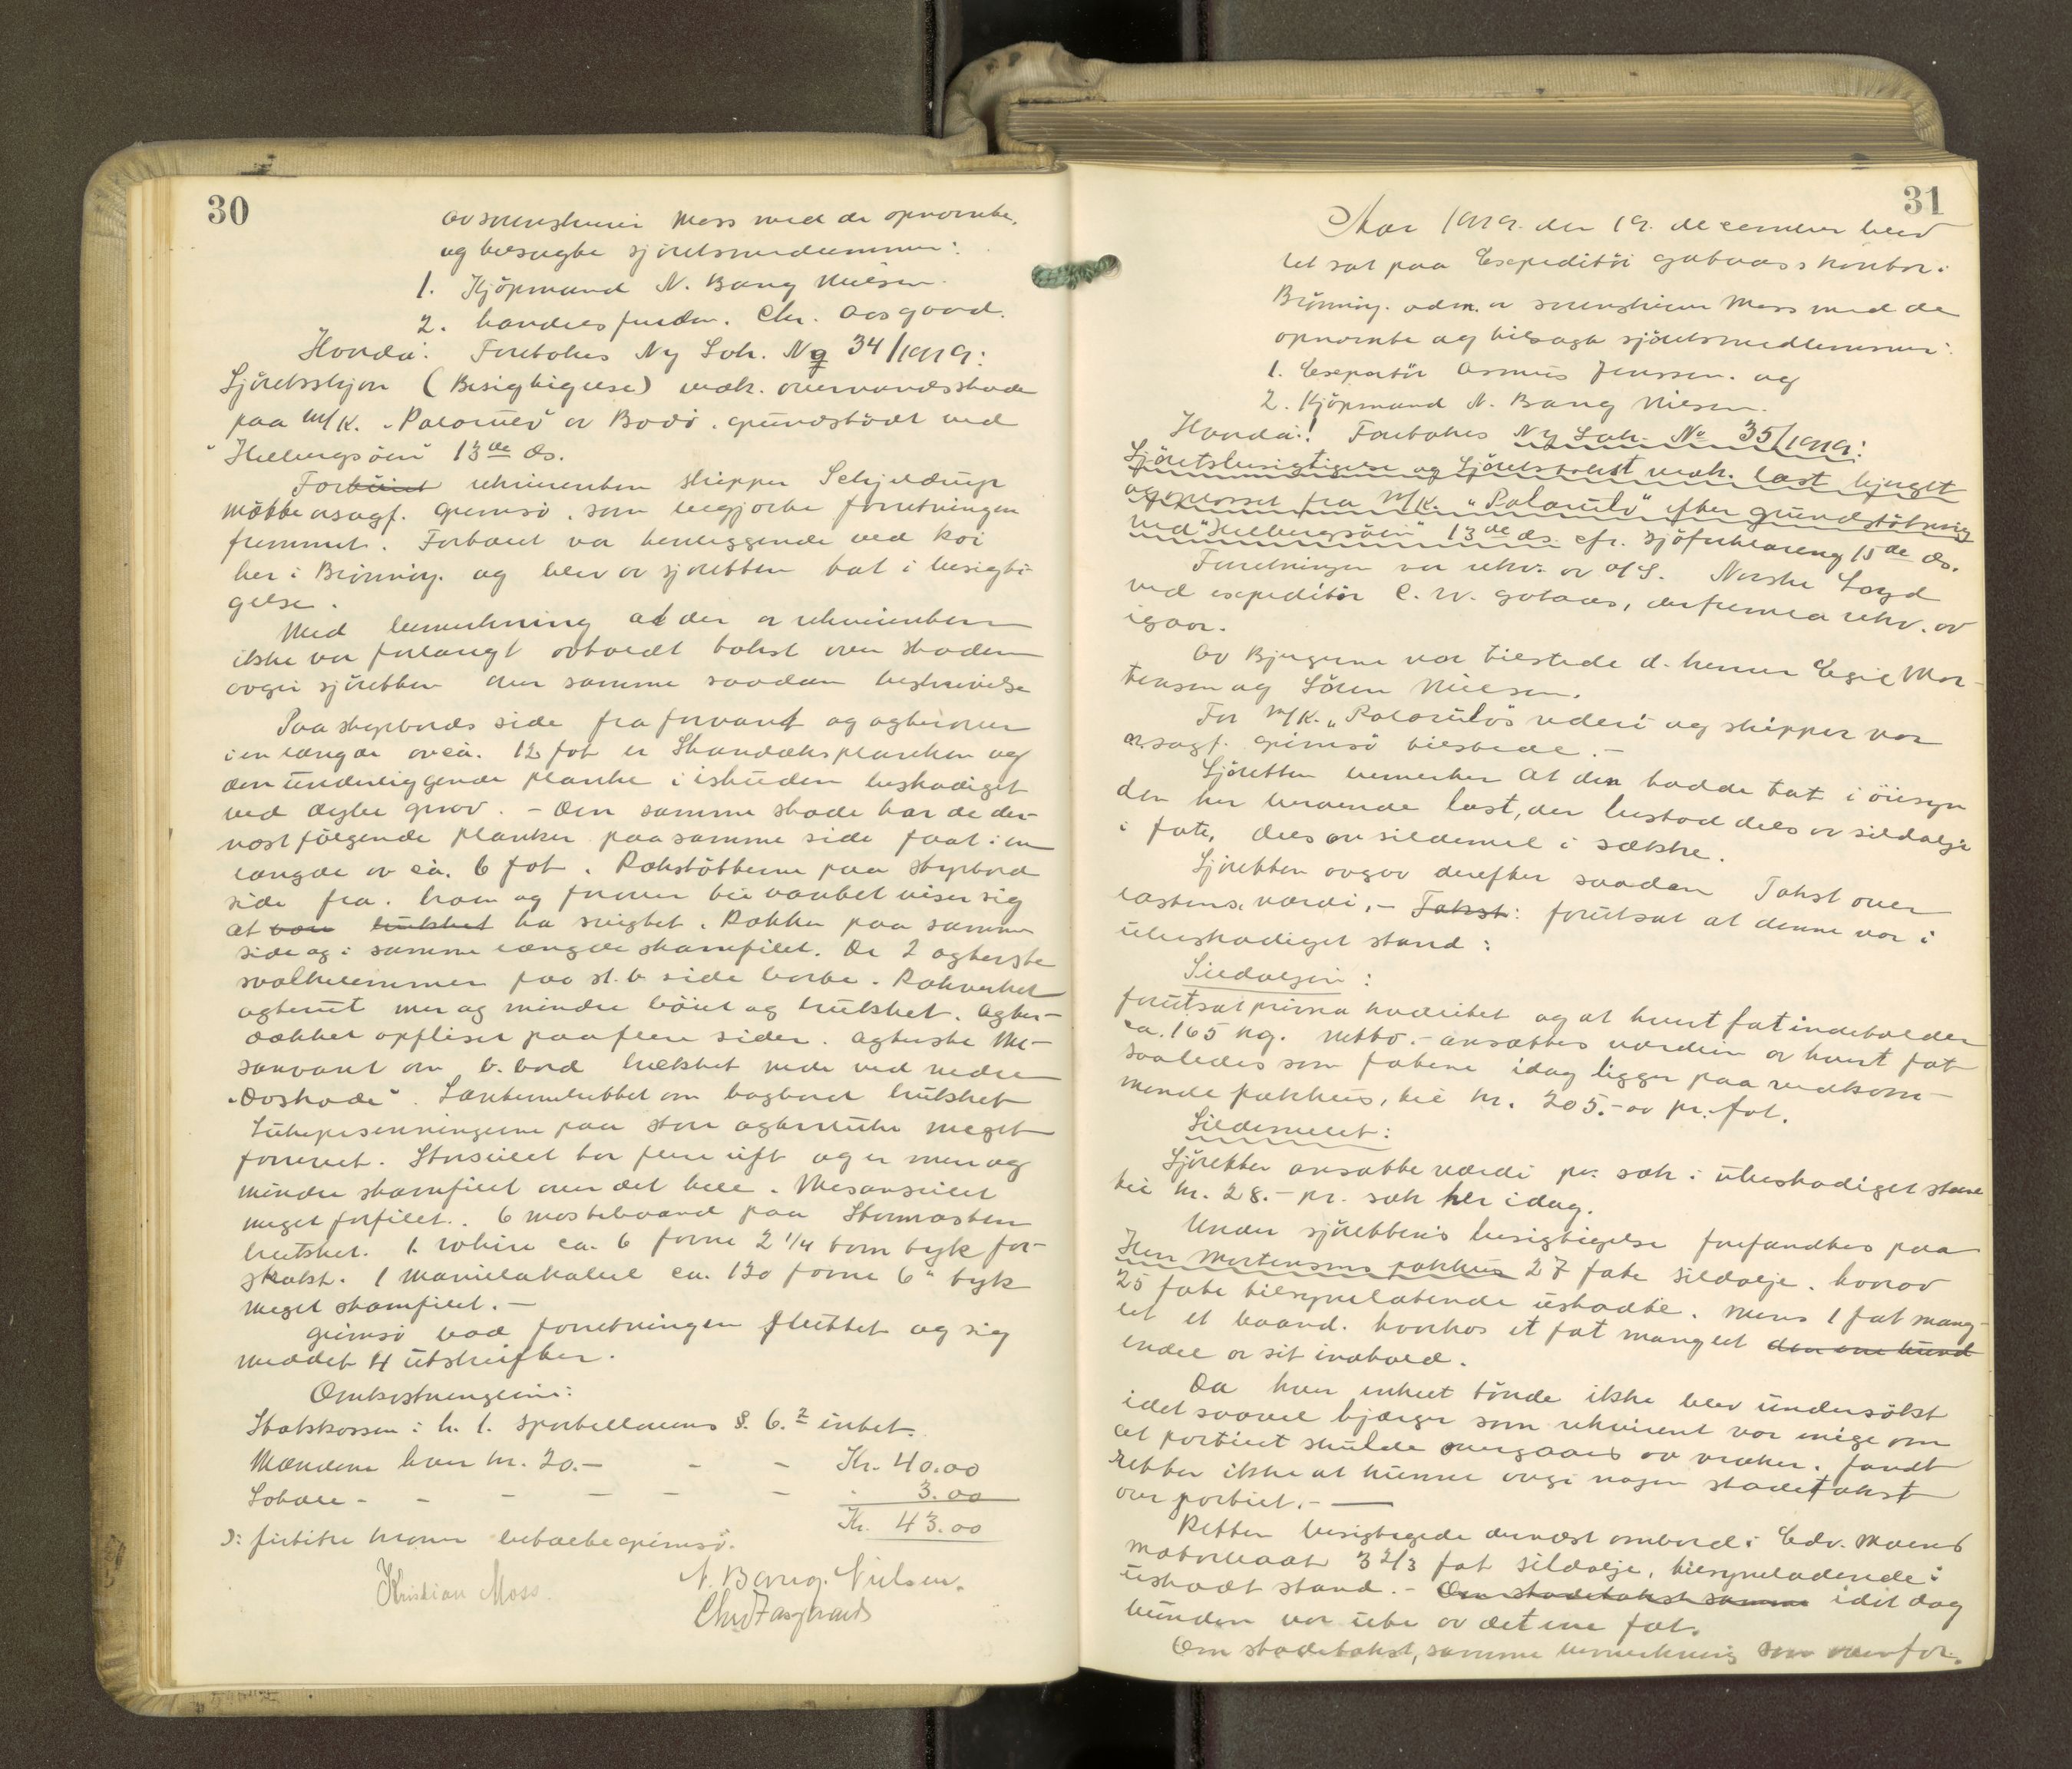 30
av sorenskriver Moss med de opnævnte
og tilsagte sjøretsmedlemmer:
1. Kjöpmand N. Bang Nielsen.
2. handelsfuldm. Chr. Aasgaard.
Hvorda: Foretokes Ny Sak. No 34/1919:
Sjöretsskjön (Besigtigelse) vedk. overvandsskade
paa M/K. "Polarulv" av Bodö, grundstödt ved
"Hellbergsöen" 13de ds.
Forböiet rekvirenten skipper Schjelderup
mötte osagf. Grimsö, som begjærte forretningen
fremmet. Fartöiet var henliggende ved kai
her i Brönnöy. og blev av sjöretten tat i besigti-
gelse.
Med bemerkning at der av rekvirenten
ikke var forlangt avholdt takst over skaden
avgir sjöretten over samme saadan beskrivelse
Paa styrbords side fra forvant og agterover
i en længde av ca. 12 fot er Skandæksplanken og
den underliggende planke i ishuden beskadiget
ved dype grov. - Den samme skade har de der-
næst fölgende planker paa samme side faat i en
længde av ca. 6 fot. Rækstötterne paa styrbord
side fra. hæm og forover til vantet viser sig
at være brukket ha svigtet. Rækken paa samme
side og i samme længde skamfilet. De 2 agterste
svalkelemmer paa st.b side borte. Rækverket
agterut mer og mindre böiet og brukket. Agter-
dækket opfliset paa flere sider. Agterste Me-
sanvant om b. bord brækket nede ved nedre
"Doshode". Lanternebrettet om bagbord brukket
Lukepresenningerne paa stor agterluke meget
forrevet. Storseilet har flere rift og er mer og
mindre skamfilet over det hele. Mesanseilet
meget forfilet. 6 mastebaand paa Stormasten
brukket. 1 wire ca. 6 favne 2 1/4 tom tyk for-
spækst. 1 Manillakabel ca. 120 favne 6" tyk
meget skamfilet. -
Grimsö bad forretningen sluttet og sig
meddelt 4 utskrifter.
Omkostningerne:
Statskassen: h. t. sportellovens §. 6.2 intet.
Mændene hver kr. 20.- - - Kr. 40.00
Lokale - - - - - - - 3.00
Kr. 43.00
ɔ: firtitre kroner betalte Grimsö.
Kristian Moss. N. Bang. Nielsen.
Chr Aasgaard
31
Aar 1919. den 19. december blev
ret sat paa Expeditör Gotaas's kontor i
Brönnöy. adm. av sorenskriver Moss med de
opnævnte og tilsagte sjöretsmedlemmer:
1. Exportör Asmus Jenssen. og
2. Kjöpmand N. Bang Nielsen.
Hvorda:! Foretokes Ny Sak. No 35/1919:
Sjöretsbesigtigelse og Sjöretstakst vedk. last bjerget
og losset fra M/K. "Polarulv" efter grundstötning
ved "Hellbergsöen" 13de ds. cfr. sjöforklaring 15de ds.
Forretningen var rekv. av A/S. Norske Loyd
ved expeditör C. W. Gotaas, derfremla rekv. av
igaar.
Av Bjergerne var tilstede d. herrer Egil Mor-
tensen og Sören Nielsen.
For M/K. "Polarulvs" rederi og skipper var
o.sagf. Grimsö tilstede. -
Sjöretten bemerker at den hadde tat i öiesyn
den her beroende last, der bestod dels av sildolje
i fate, dels av sildemel i sække.
Sjöretten avgav derefter saadan Takst over
lastens, værdi, - Takst: forutsat at denne var i
ubeskadiget stand:
Sildoljen:
forutsat prima kvalitet og at hvert fat indeholder
ca. 165 kg. netto. - ansættes værdien av hvert fat
saaledes som fatene idag ligger paa vedkom-
mende pakhus, til kr. 205.- av pr. fat.
Sildemelet:
Sjöretten ansatte værdi pr. sæk i ubeskadiget stand
til kr. 28.- pr. sæk her idag.
Under sjörettens besigtigelse forefandtes paa
Herr Mortensens pakhus 27 fate sildolje. hvorav
25 fate tilsynelatende uskadte. mens 1 fat mang-
let et baand. hvorhos et fat manglet den ene bund
endel av sit indhold.
Da hver enkelt tönde ikke blev undersökt
idet saavel bjerger som rekvirent var enige om
at partiet skulde overgaaes av vraker. fandt
retten ikke at kunne avgi nogen skadetakst
over partiet. -
Retten besigtigede dernæst ombord i Edv. Moens
motorbaat 3 2/3 fat sildolje, tilsynelatende i
uskadt stand. - Om skadetakst samme idet dog
bunden var ute av det ene fat.
Om skadetakst, samme bemerkning som ovenfor.